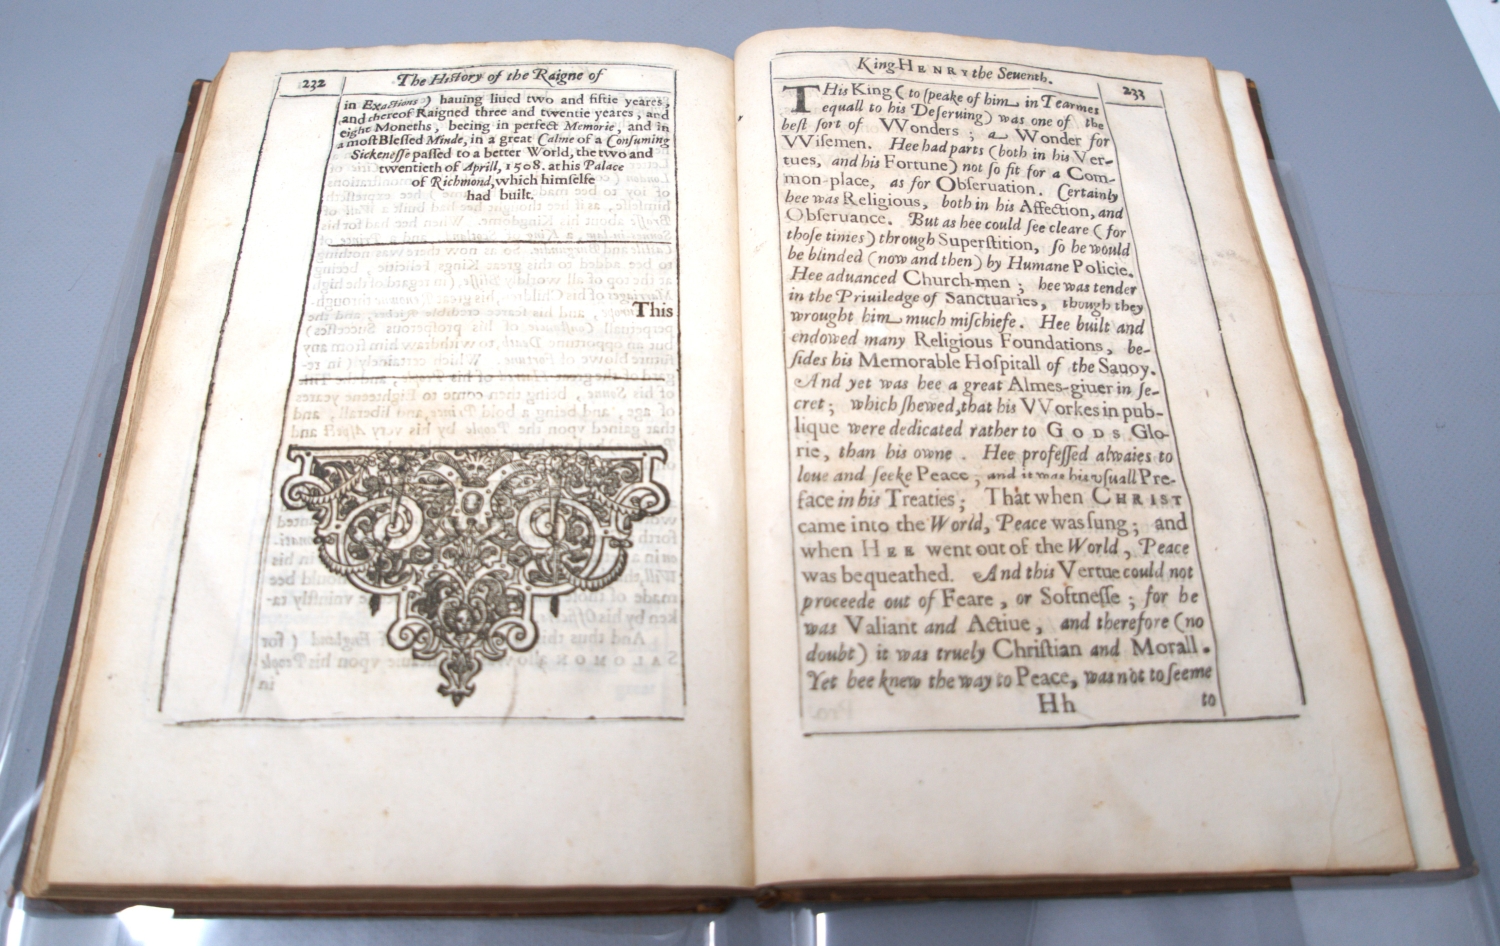 232
The History of the Raigne of
in Exactions) hauing liued two and fiftie yeares,
and thereof Raigned three and twentie yeares, and
eight Moneths, beeing in perfect Memorie, and in
a most Blessed Minde, in a great Calme of a Consuming
Sickenesse passed to a better World, the two and
twentieth of Aprill, 1508. at his Palace
of Richmond, which himselfe
had built.
This
King HENRY the Seuenth.
233
THis King (to speake of him in Tearmes
equall to his Deseruing) was one of the
best sort of VVonders; a Wonder for
VVisemen. Hee had parts (both in his Ver-
tues, and his Fortune) not so fit for a Com-
mon-place, as for Obseruation. Certainly
hee was Religious, both in his Affection, and
Obseruance. But as hee could see cleare (for
those times) through Superstition, so he would
be blinded (now and then) by Humane Policie.
Hee aduanced Church-men; hee was tender
in the Priuiledge of Sanctuaries, though they
wrought him much mischiefe. Hee built and
endowed many Religious Foundations, be-
sides his Memorable Hospitall of the Sauoy.
And yet was hee a great Almes-giuer in se-
cret; which shewed, that his VVorkes in pub-
lique were dedicated rather to GODS Glo-
rie, than his owne. Hee professed alwaies to
loue and seeke Peace; and it was his vsuall Pre-
face in his Treaties; That when CHRIST
came into the World, Peace was sung; and
when HEE went out of the World, Peace
was bequeathed. And this Vertue could not
proceede out of Feare, or Softnesse; for he
was Valiant and Actiue, and therefore (no
doubt) it was truely Christian and Morall.
Yet hee knew the way to Peace, was not to seeme
Hh
to